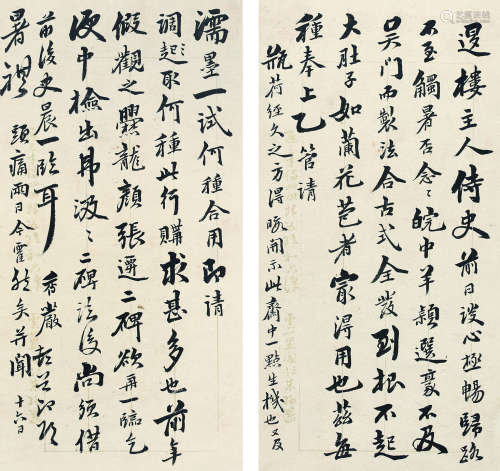 邊樓主人侍史前日談心極暢歸路
不至觸暑否念々皖中羊穎選豪不及
吳門而製法合古式全發到根不起
大肚子如蘭花苞者最得用也茲每
種奉上乙管請
瓶荷經久之方得暇開示此齋中一點生機也又及
濡墨一試何種合用即請
調起取何種此行購求甚多也前年
假觀之爨龍顏張遷二碑欲再一臨乞
便中檢出弟汲々二碑法後尚須借
前後史晨一臨耳
暑禔
頭痛兩日今霍然矣並聞 十六日